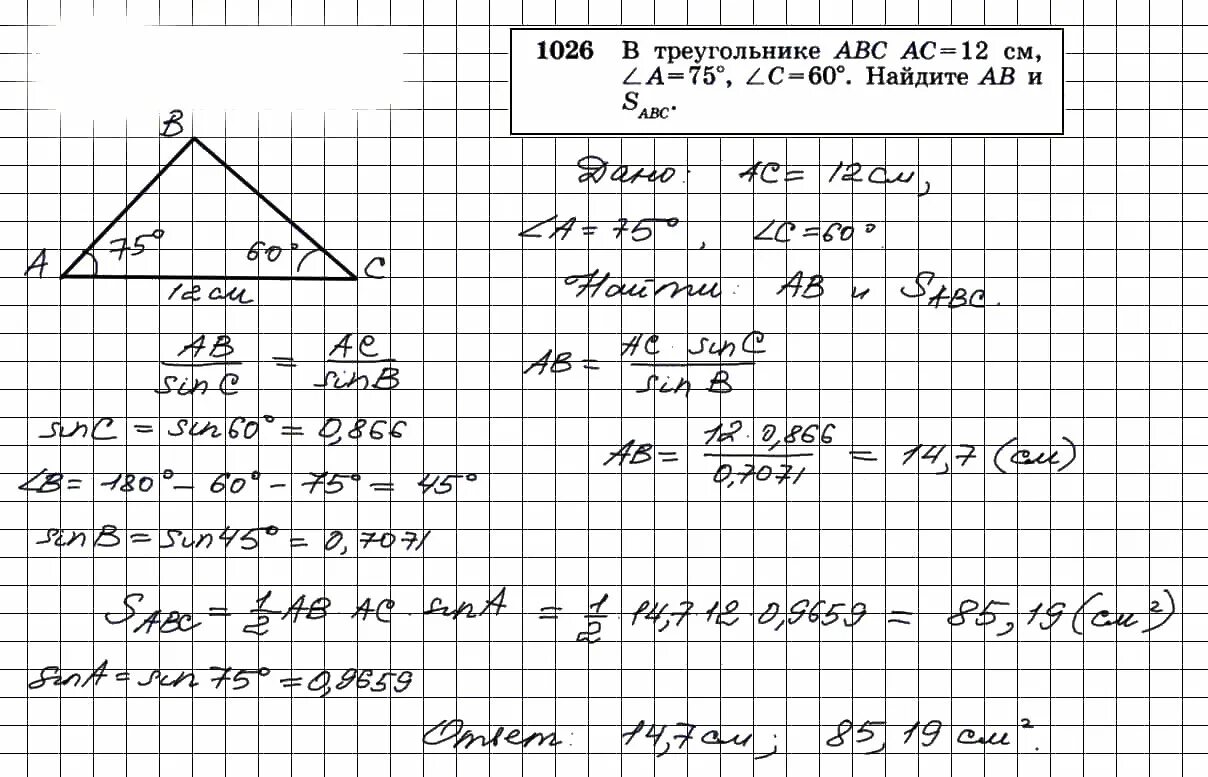 1026 В треугольнике ABC AC=12 см,
∠A=75°, ∠C=60°. Найдите AB и
S_ABC.
B
A 75° 60° C
12 см
Дано: AC = 12 см,
∠A = 75°, ∠C = 60°.
Найти: AB и S_ABC.
AB/sin C = AC/sin B
AB = AC · sin C / sin B
sin C = sin 60° = 0,866
AB = 12 · 0,866 / 0,7071 = 14,7 (см)
∠B = 180° - 60° - 75° = 45°
sin B = sin 45° = 0,7071
S_ABC = 1/2 AB · AC · sin A = 1/2 · 14,7 · 12 · 0,9659 = 85,19 (см²)
sin A = sin 75° = 0,9659
Ответ: 14,7 см; 85,19 см².